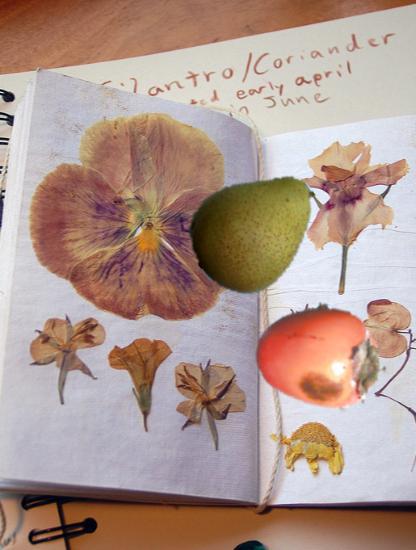 Cilantro/Coriander
early april
in June